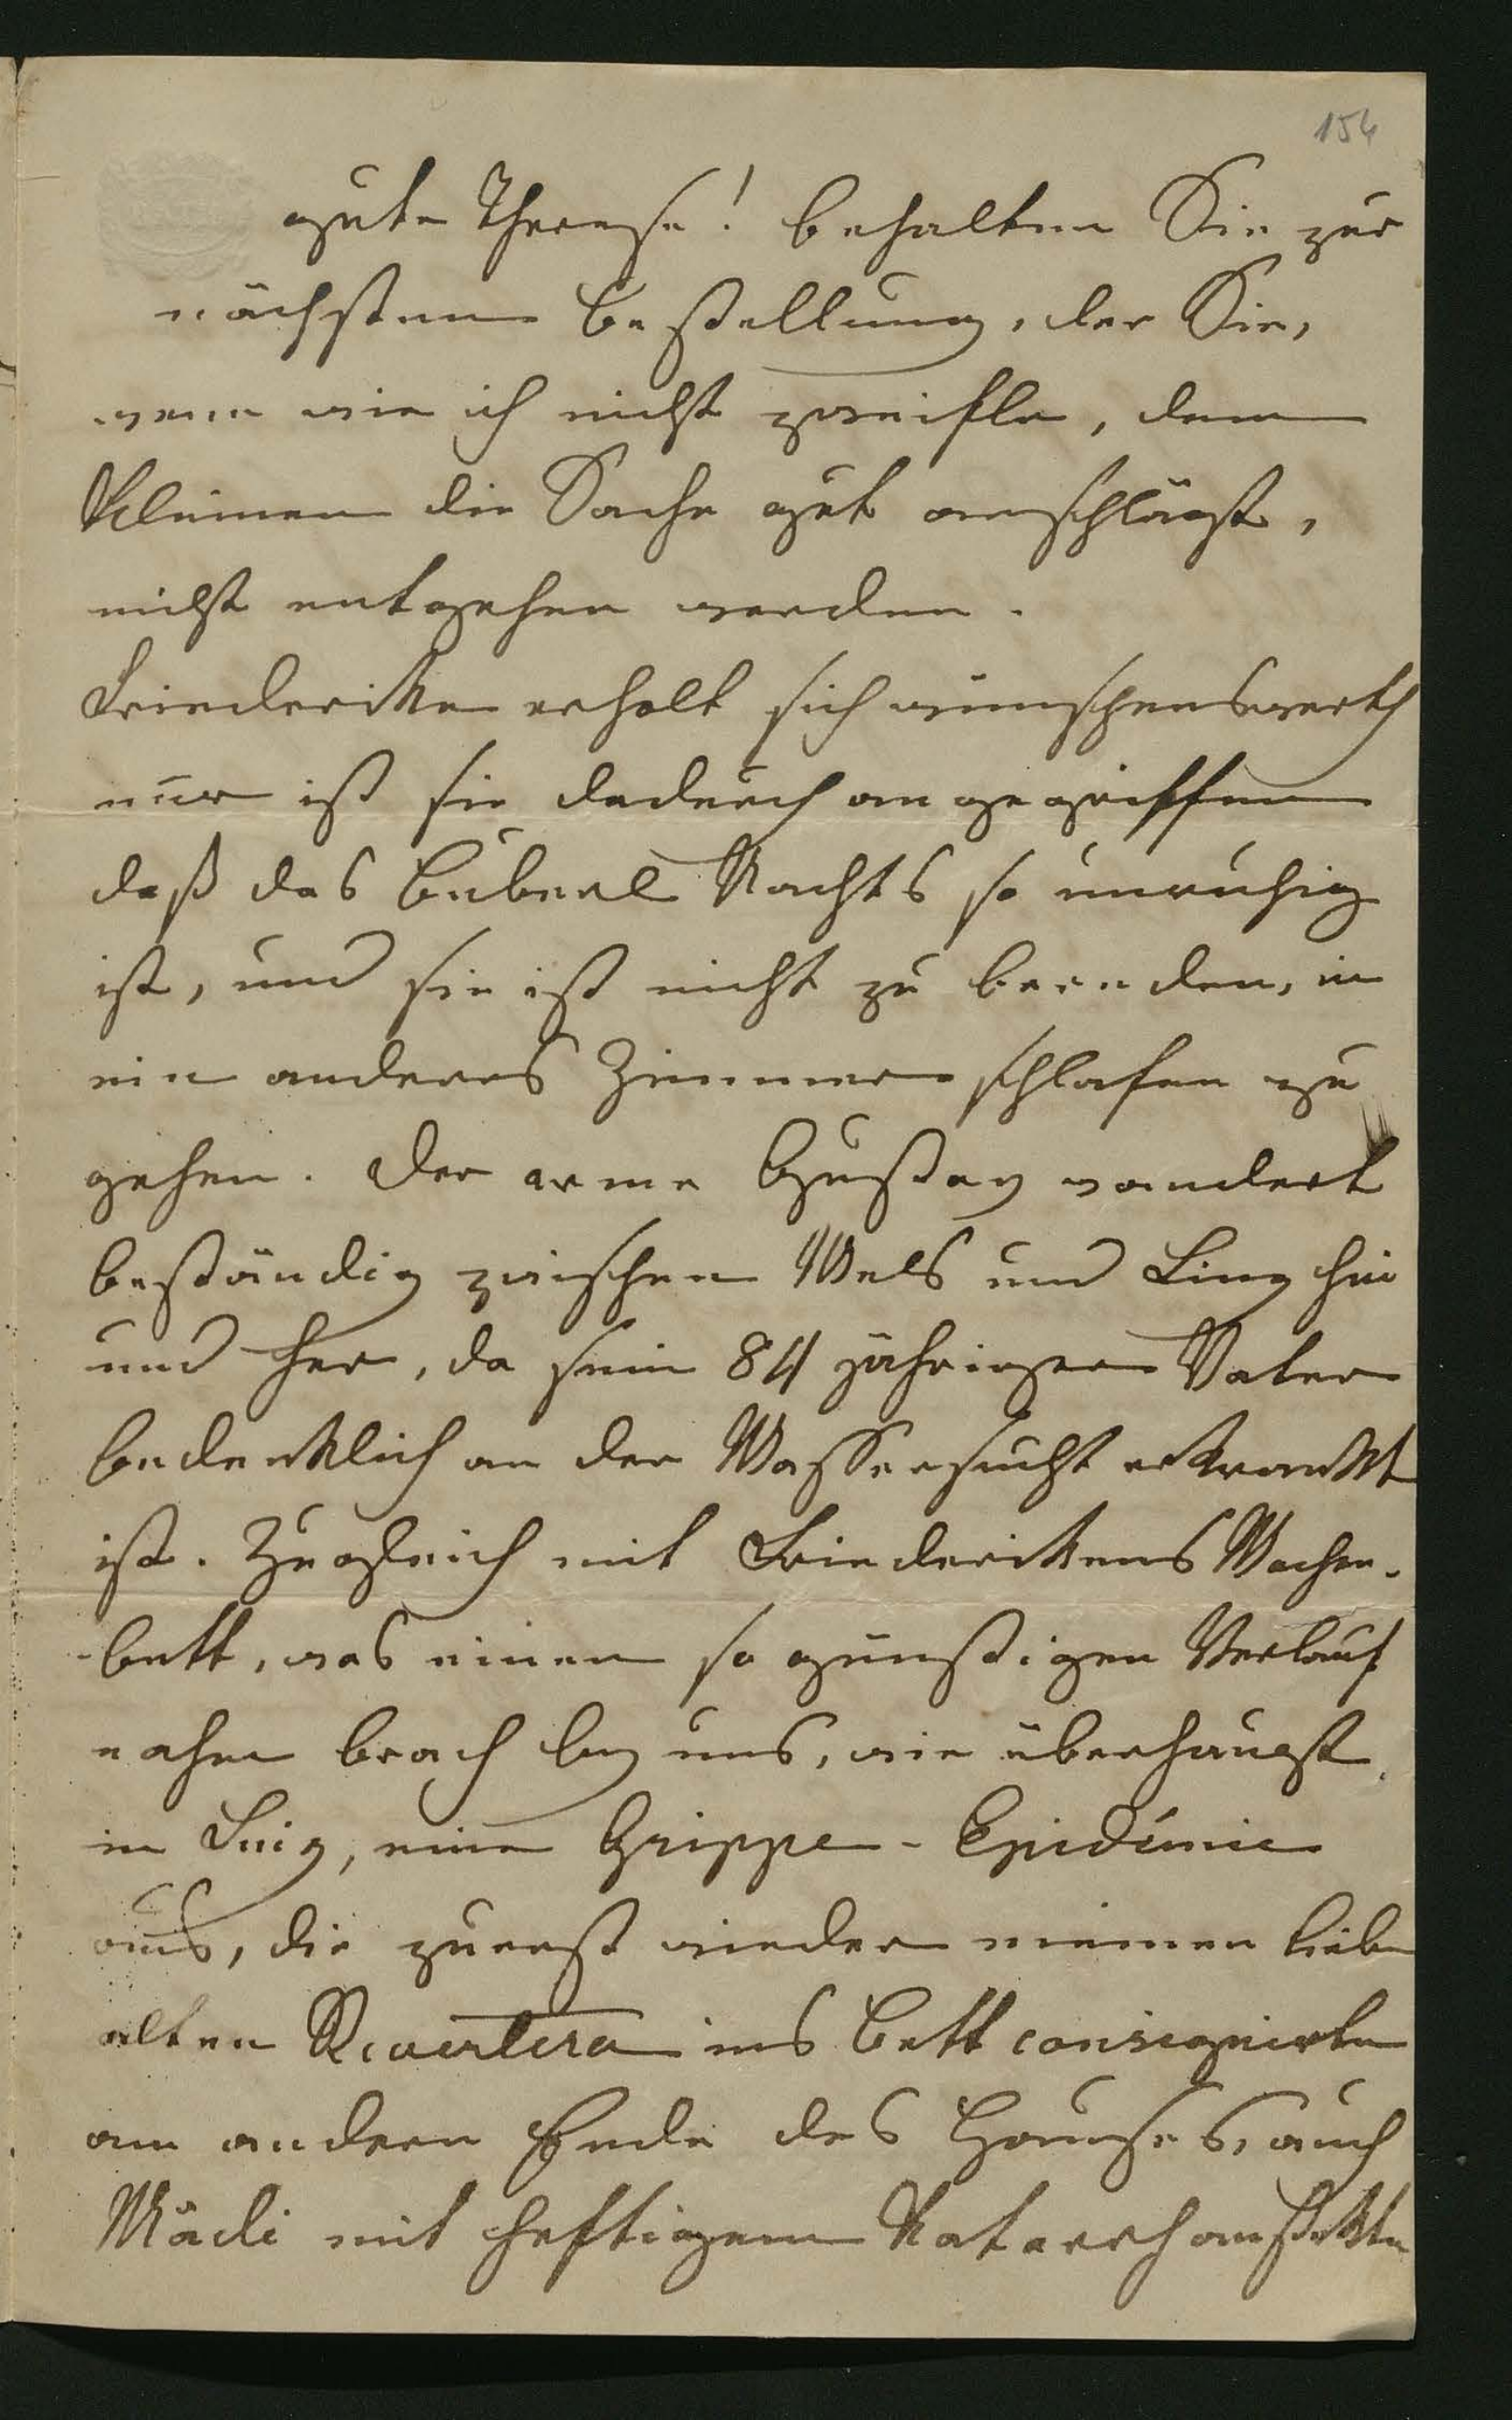 154
gute Therese! behalten Sie zur
nächsten Bestellung, der Sie,
wenn wie ich nicht zweifle, dem
Kleinen die Sache gut anschlägt,
nicht entgehen werden.
Friederike erholt sich wünschenswerth
nur ist sie dadurch angegriffen
daß das Buberl Nachts so unruhig
ist, und sie ist nicht zu bereden, in
ein anderes Zimmer schlafen zu
gehen. Der arme Gustav wandert
beständig zwischen Wels und Linz hin
und her, da sein 84 jähriger Vater
bedenklich an der Wassersucht erkrankt
ist. Zugleich mit Friederikens Wochen-
bett, was einen so günstigen Verlauf
nahm brach bey uns, wie überhaupt
in Linz, eine Grippe-Epidémie
aus, die zuerst wieder meinen lieben
alten Revertera ins Bett consignirte
am andern Ende des Hauses, auch
Mädi mit heftigem Katarrh ansteckte